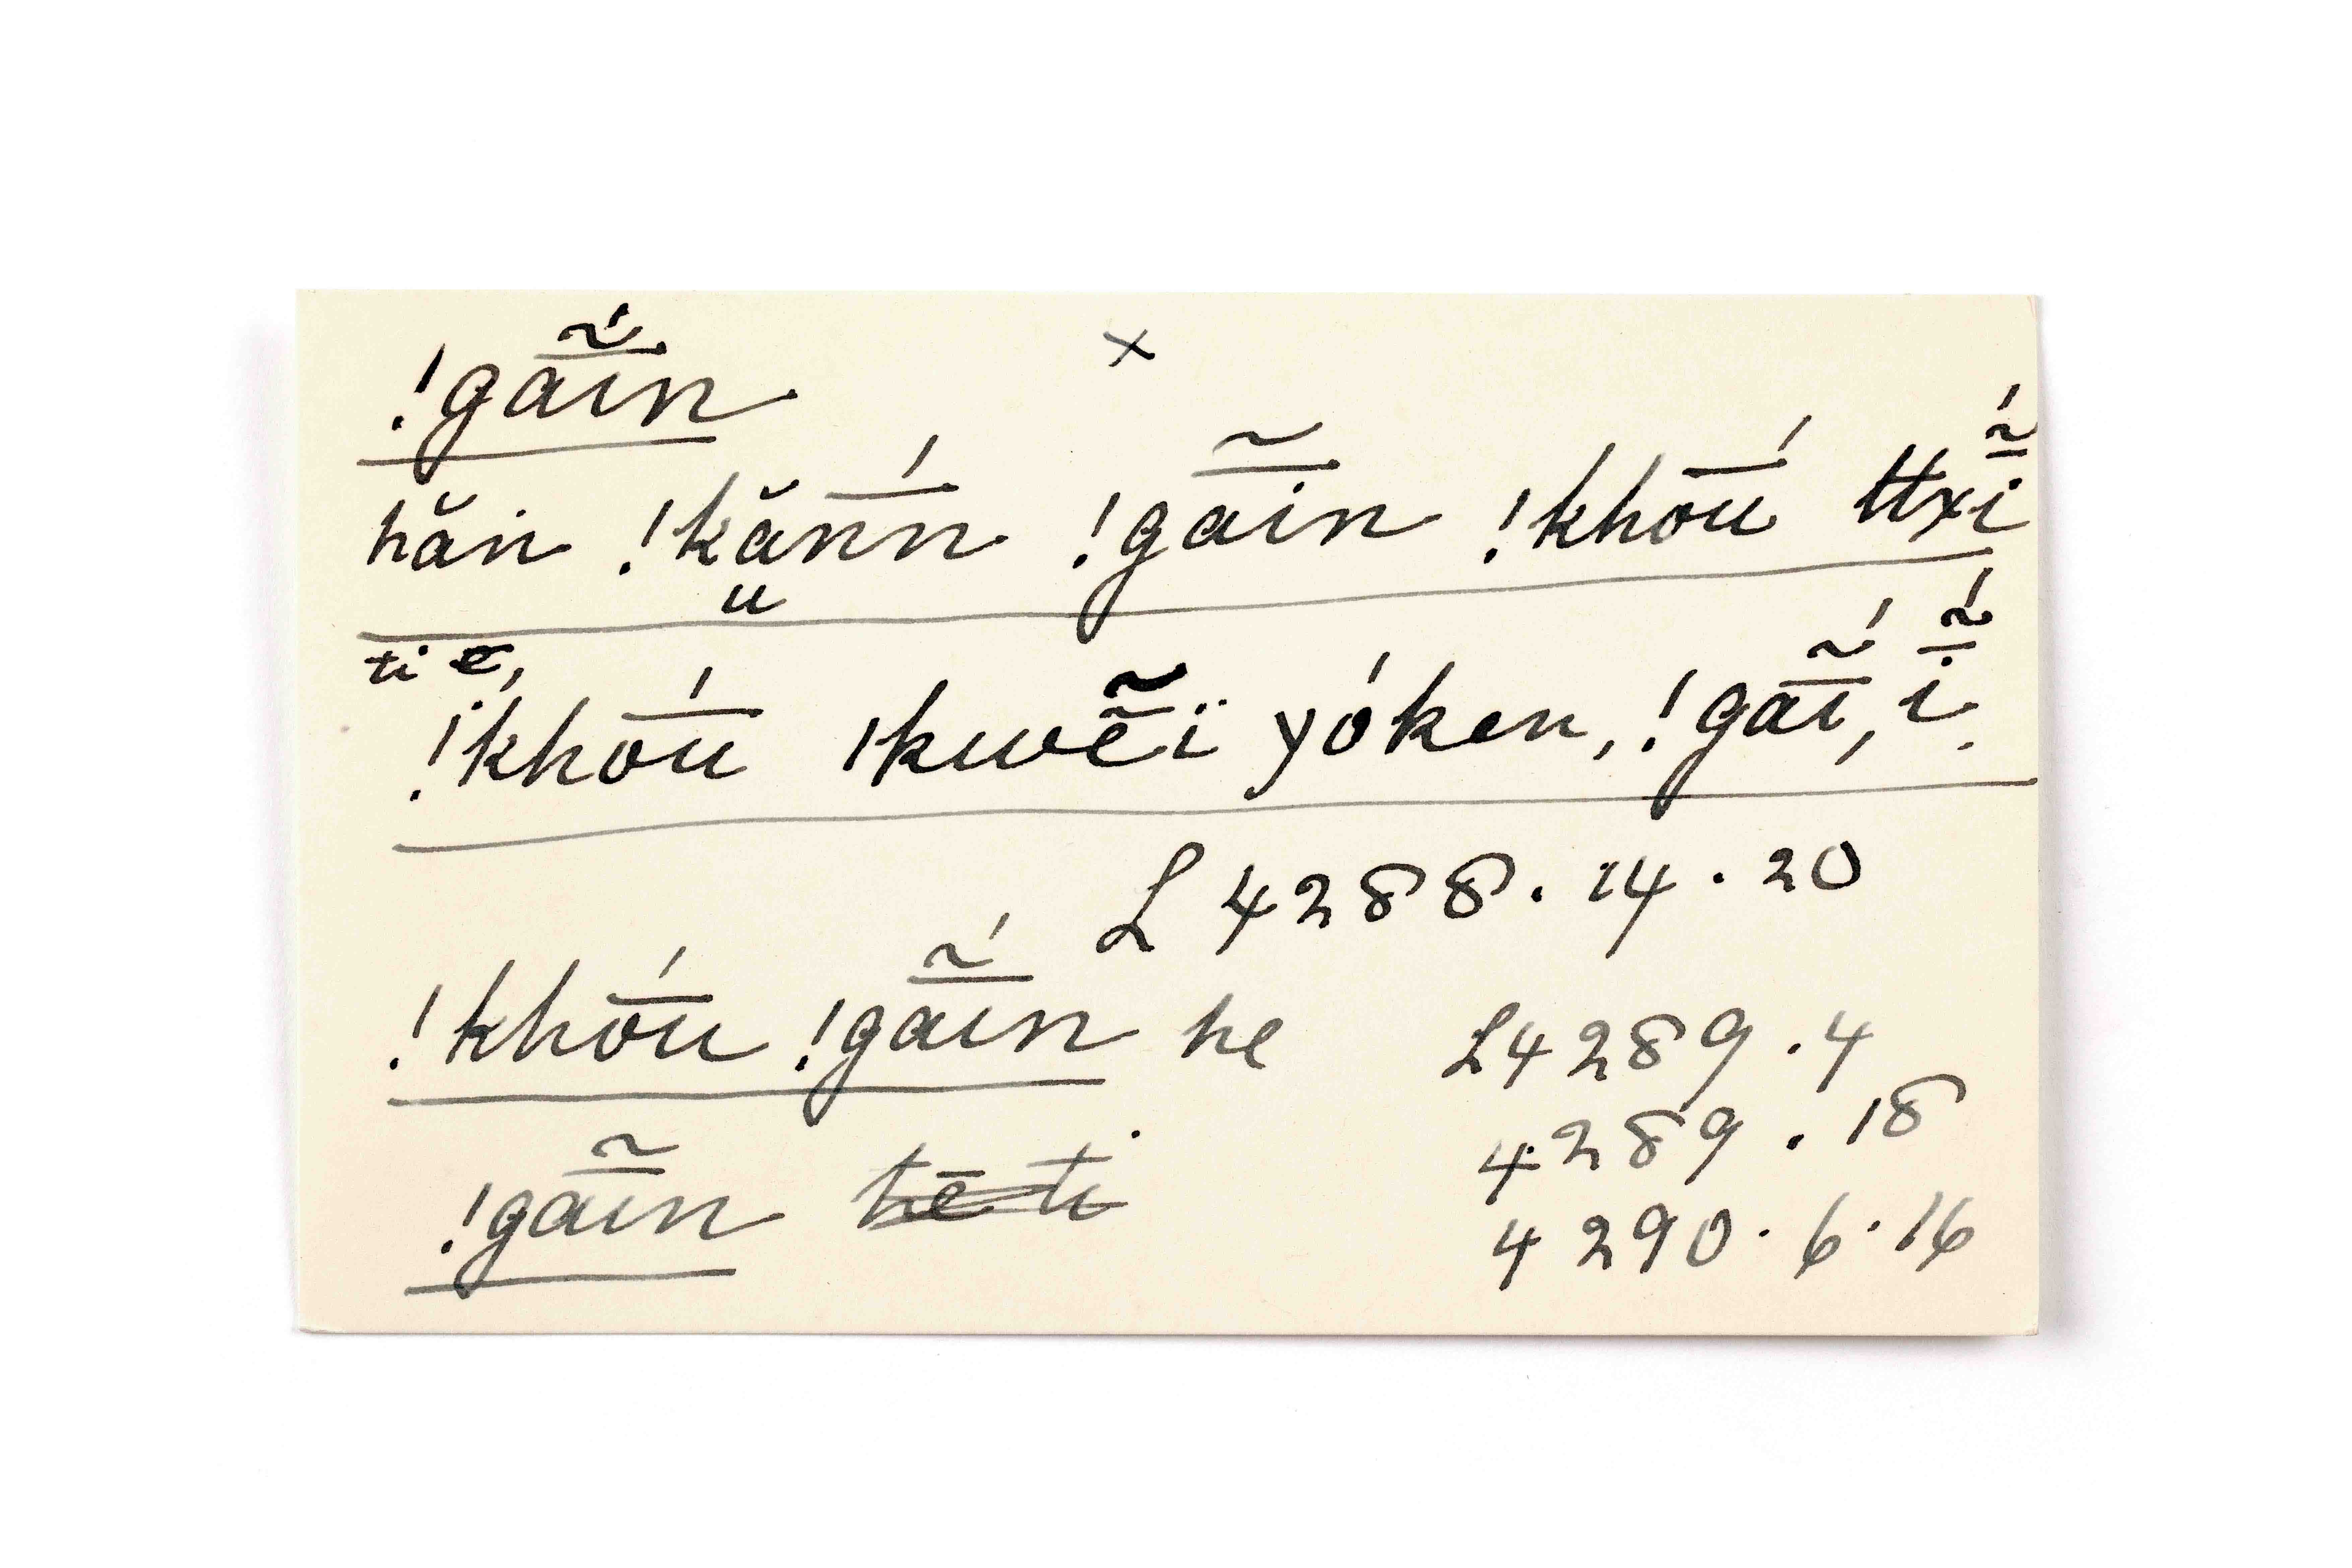 !gã́īn ×
hăn !kănń̄ !gã̄in !khoú̄ ǁxḭ̃́
u
ti e,
!khoú̄ ǀkwẽ̄ï yóken, !gã́ī, ĩ̄́.
L 4288 . 14 . 20
!khoú̄ !gã́īn he L 4289 . 4
4289 . 18
!gã̄in hē ti 4290 . 6 . 16